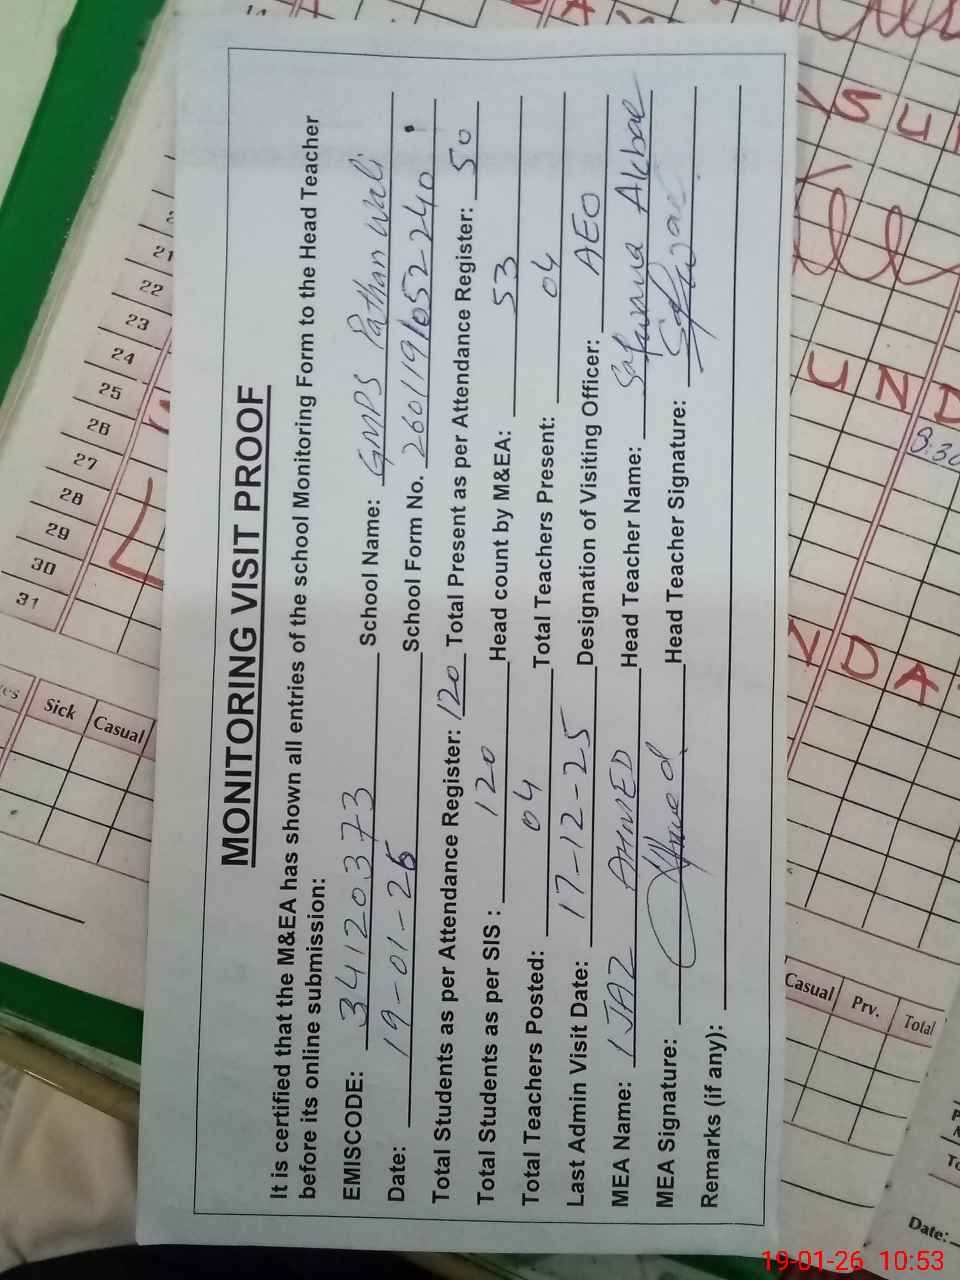 MONITORING VISIT PROOF
It is certified that the M&EA has shown all entries of the school Monitoring Form to the Head Teacher
before its online submission:
EMISCODE: 34120373 School Name: GMPS Pathan Wali
Date: 19-01-26 School Form No. 2601191052240
Total Students as per Attendance Register: 120 Total Present as per Attendance Register: 50
Total Students as per SIS : 120 Head count by M&EA: 53
Total Teachers Posted: 04 Total Teachers Present: 04
Last Admin Visit Date: 17-12-25 Designation of Visiting Officer: AEO
MEA Name: IJAZ AHMED Head Teacher Name:
MEA Signature: Ahmed Head Teacher Signature:
Remarks (if any):
21
22
23
24
25
26
27
28
29
30
31
Sick Casual
SU
UND
9:30
NDA
Casual Prv. Total
Date:
19-01-26 10:53